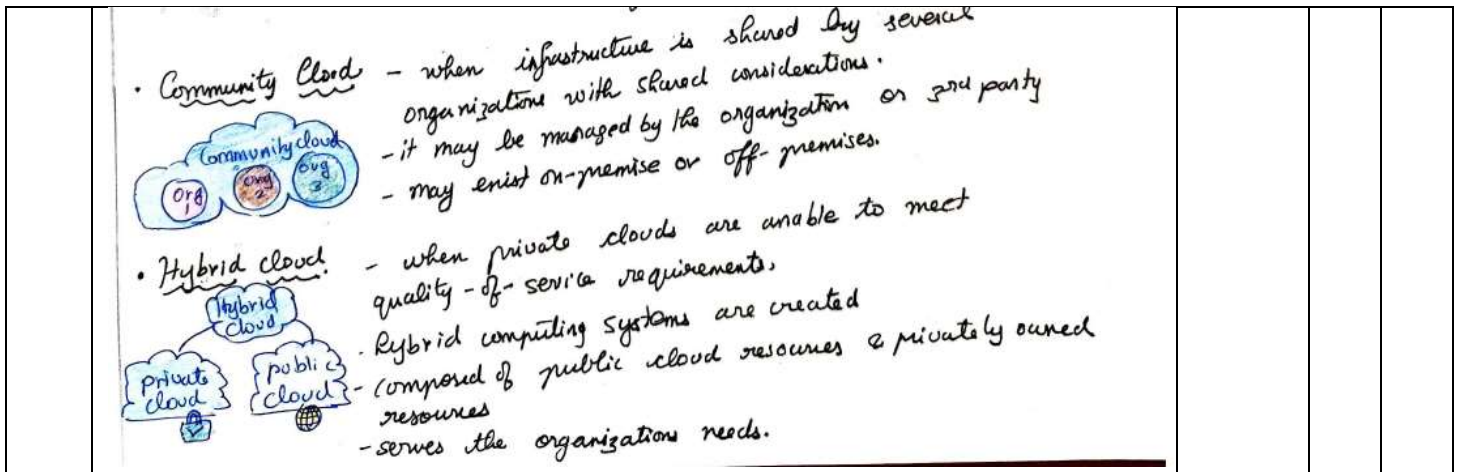 • Community Cloud - when infrastructure is shared by several
organizations with shared considerations.
- it may be managed by the organization or 3rd party
- may exist on-premise or off-premises.
Community cloud
Org 1
org 2
Org 3
• Hybrid cloud. - when private clouds are unable to meet
quality-of-service requirements,
. hybrid computing systems are created
- composed of public cloud resources & privately owned
resources
- serves the organizations needs.
Hybrid
cloud
private
cloud
public
cloud